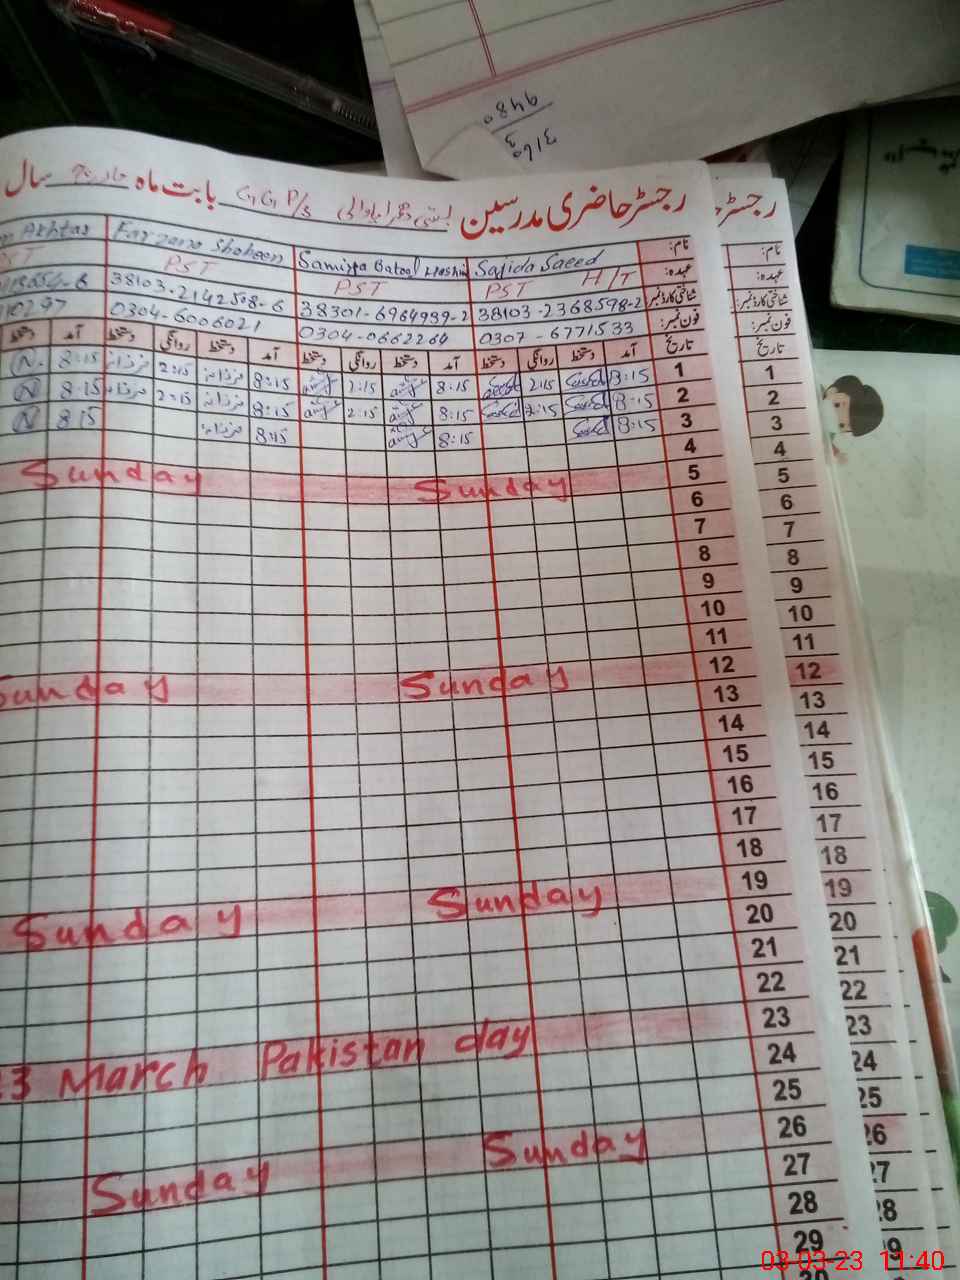 9480
3160
رجسٹر حاضری مدرسین بستی G.G.P/S بابت ماہ مارچ سال
رجسٹر
نام: Sajida Saeed Samiya Batool Hashmi Farzana Shaheen Akhtar
نام:
عہدہ: PST H/T PST PST
عہدہ:
شناختی کارڈ نمبر: 38103-2368598-2 38301-6964939-2 38103-2142508-6
شناختی کارڈ نمبر:
فون نمبر: 0307-6771533 0304-0662264 0304-6006021 10297
فون نمبر:
تاریخ آمد دستخط روانگی دستخط آمد دستخط روانگی دستخط آمد دستخط روانگی دستخط آمد دستخط
تاریخ
1 8:15 Saeed 2:15 Saeed 8:15 2:15 8:15 فرزانہ 2:15 فرزانہ 8:15 N.
1
2 8:15 Saeed 2:15 Saeed 8:15 2:15 8:15 فرزانہ 2:15 فرزانہ 8:15 N
2
3 8:15 Saeed 8:15 8:15 فرزانہ 8 15 N
3
4
4
5 Sunday Sunday
5
6
6
7
7
8
8
9
9
10
10
11
11
12 Sunday Sunday
12
13
13
14
14
15
15
16
16
17
17
18
18
19 Sunday Sunday
19
20
20
21
21
22
22
23 3 March Pakistan day
23
24
24
25
25
26 Sunday Sunday
26
27
27
28
28
29
03-03-23 11:40